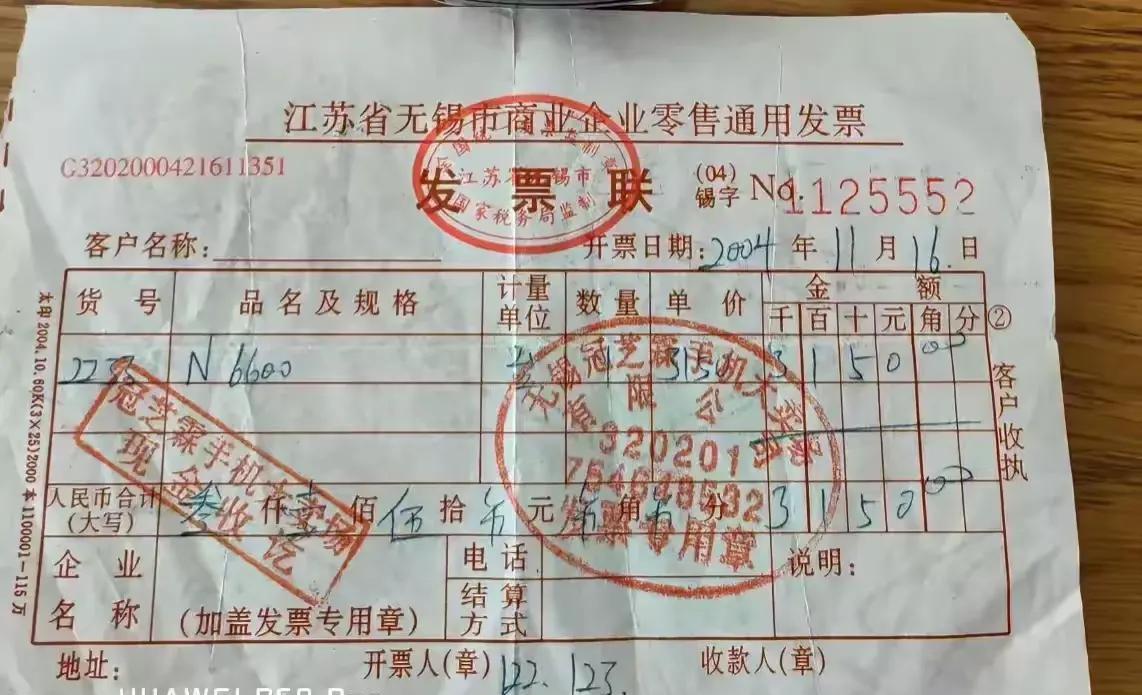 江苏省无锡市商业企业零售通用发票
G3202000421611351
发票联
江苏省无锡市
国家税务局监制
(04)
锡字 No.1125552
客户名称:
开票日期: 2004 年 11 月 16 日
货号 品名及规格 计量单位 数量 单价 金额
千 百 十 元 角 分
② 客户收执
N6600 1 3150 3 1 5 0 00
无锡冠芝霖手机大卖场
有限公司
320201
发票专用章
冠芝霖手机卖场
现金收讫
人民币合计(大写) 叁仟壹佰伍拾 元 角 分 3 1 5 0 00
企业名称
(加盖发票专用章)
电话
结算方式
说明:
地址:
开票人(章) 122.123.
收款人(章)
太印2004.10.60K(3×25)2000本1100001-115万